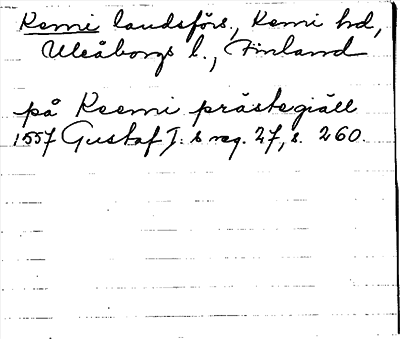 Kemi landsförs., Kemi hd,
Uleåborgs l., Finland
på Keemi prästegiäll
1557 Gustaf I:s reg. 27, s. 260.